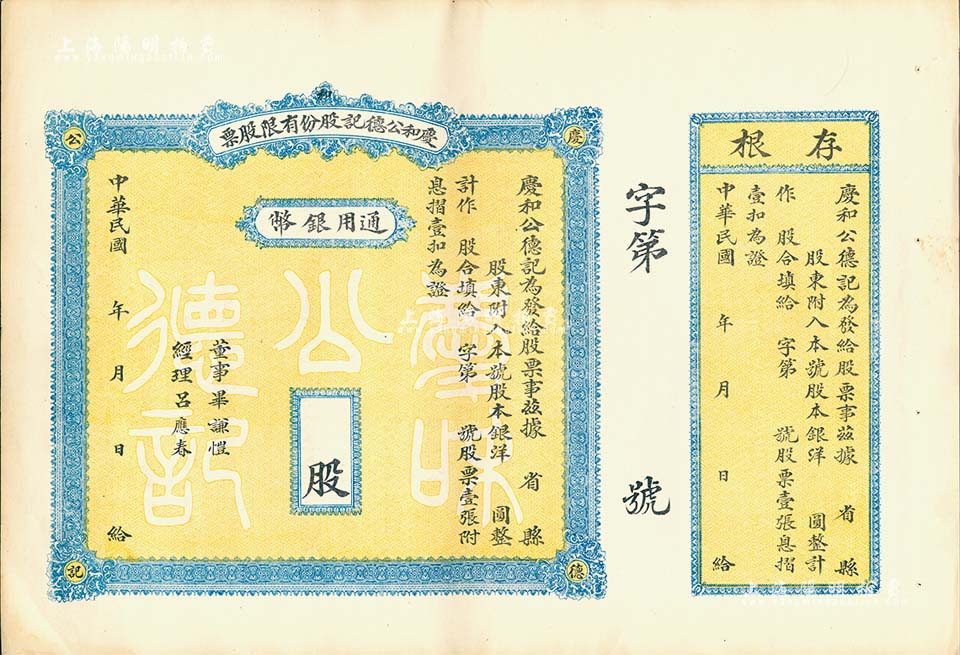 上海陽明拍賣
www.yangmingauction.com
和
慶和公德記股份有限股票
慶
公
德
記
通用銀幣
慶和公德記為發給股票事茲據　省　縣
股東附入本號股本銀洋　圓整
計作　股合填給　字第　號股票壹張附
息摺壹扣為證
慶和
公
德記
股
董事畢謙愷
經理呂應春
中華民國　年　月　日　給
字第　號
存根
慶和公德記為發給股票事茲據　省　縣
股東附入本號股本銀洋　圓整計
作　股合填給　字第　號股票壹張息摺
壹扣為證
中華民國　年　月　日　給
上海陽明拍賣
上海陽明拍賣